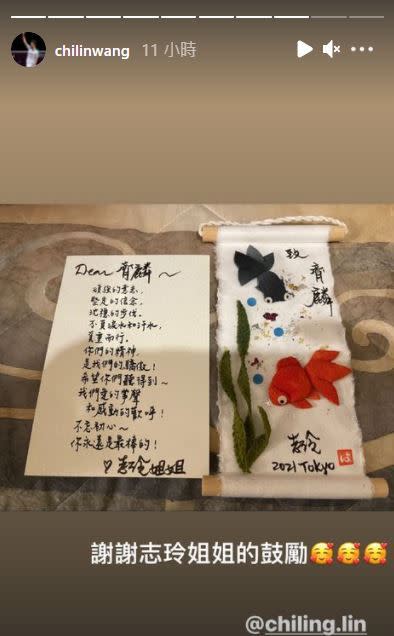 chilinwang 11 小時
Dear 齊麟～
頑強的意志,
堅定的信念,
沈穩的步伐,
不負淚水和汗水,
負重而行,
你們的精神,
是我們的驕傲!
希望你們聽得到～
我們愛的掌聲
和感動的歡呼!
不忘初心～
你永遠是最棒的!
♡志玲姐姐
致
齊麟
志玲
2021 Tokyo
謝謝志玲姐姐的鼓勵🥰🥰🥰
@chiling.lin